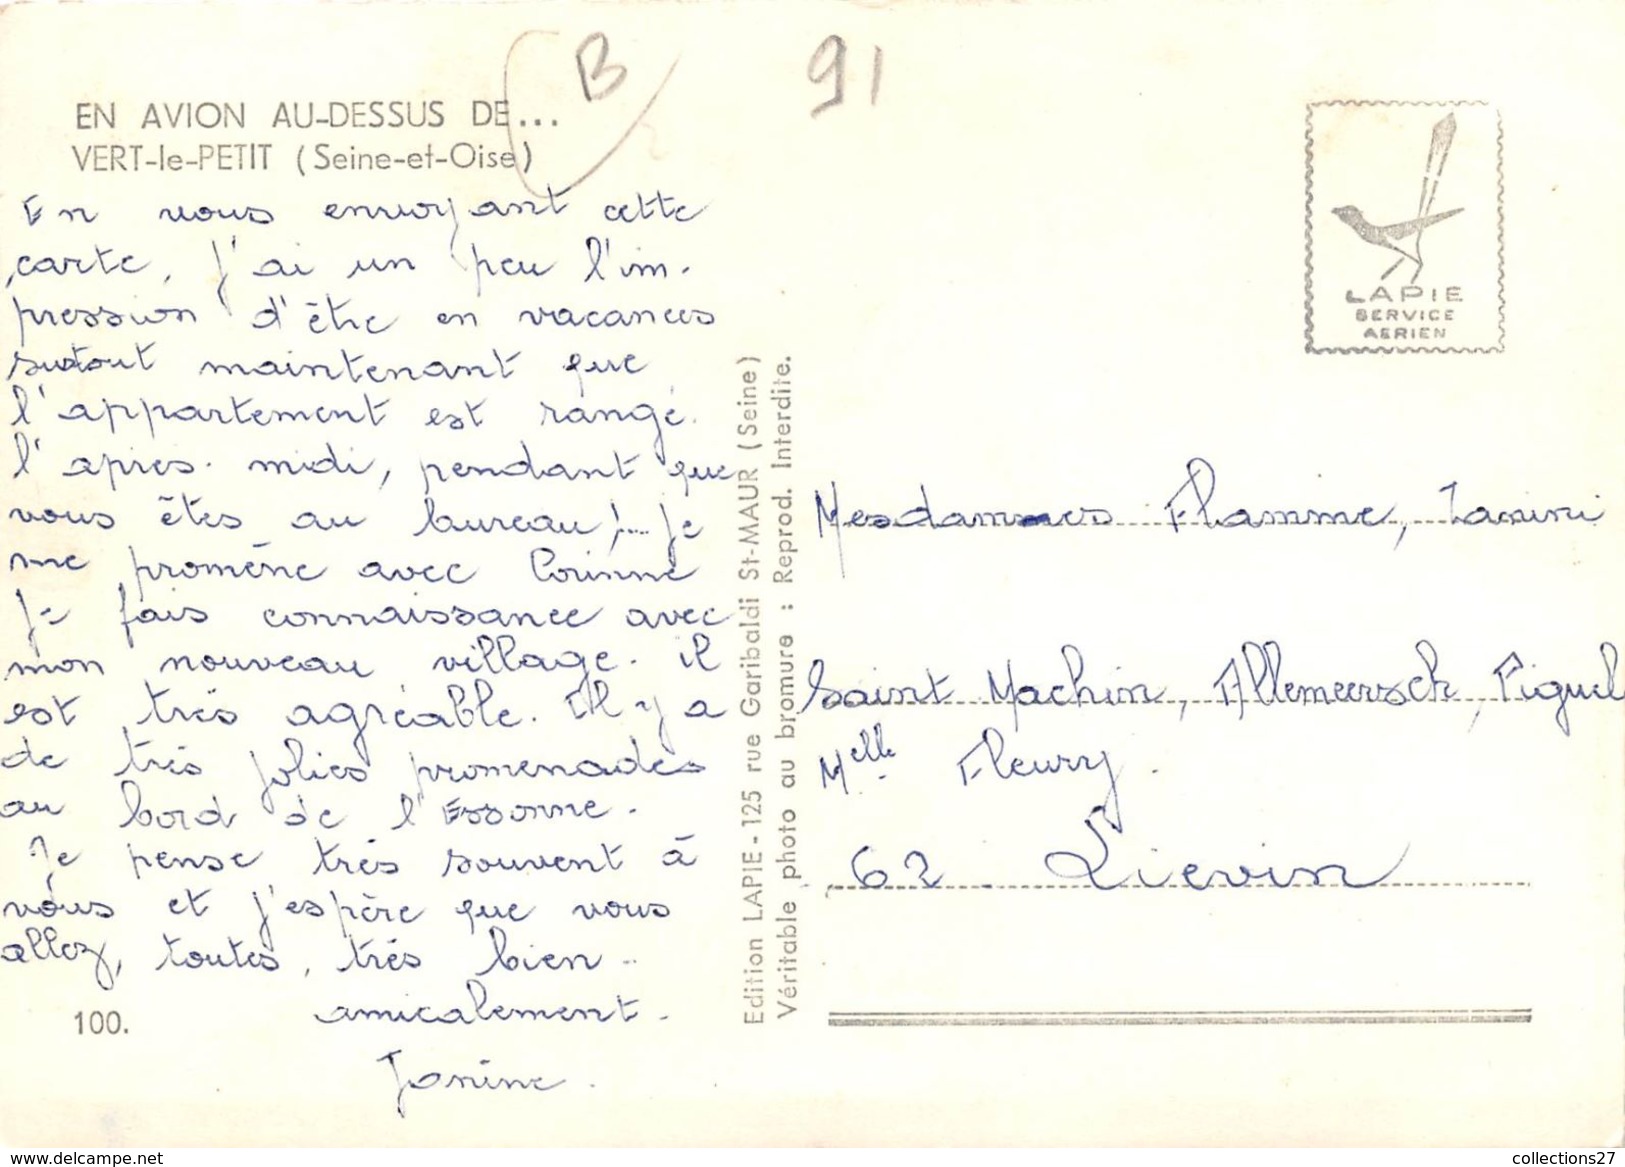 B
91
EN AVION AU-DESSUS DE...
VERT-le-PETIT (Seine-et-Oise)
En vous envoyant cette
carte, j'ai un peu l'im-
pression d'être en vacances
surtout maintenant que
l'appartement est rangé.
l'après-midi, pendant que
vous êtes au bureau !... je
me promène avec Corinne
Je fais connaissance avec
mon nouveau village. il
est très agréable. Il y a
de très jolies promenades
au bord de l'Essonne.
Je pense très souvent à
vous et j'espère que vous
allez, toutes, très bien.
amicalement.
Janine.
100.
Edition LAPIE - 125 rue Garibaldi St-MAUR (Seine)
Véritable photo au bromure : Reprod. Interdite.
LAPIE
SERVICE
AERIEN
Mesdammes Flamme, Zanini
Saint Machin, Allemeersch, Piquel
Melle Fleury.
62. Liévin
collections27